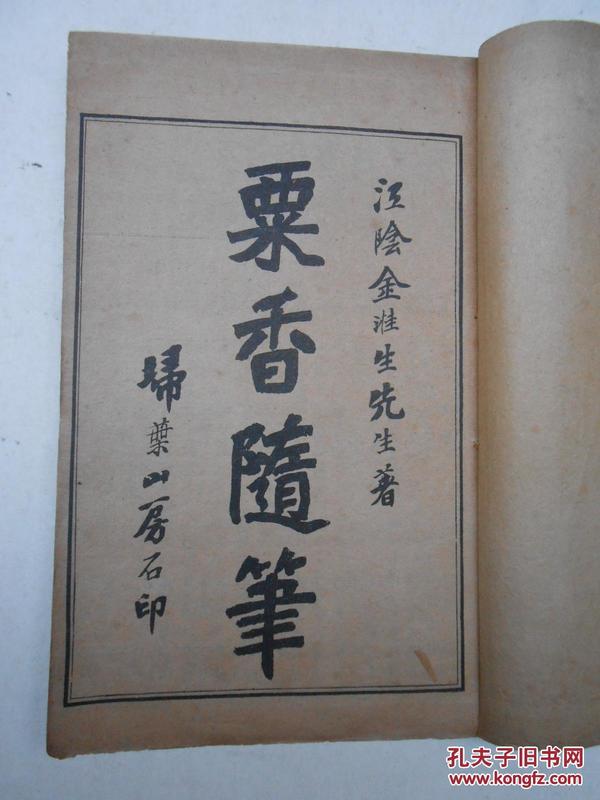 江陰金溎生先生著
粟香隨筆
埽葉山房石印
孔夫子旧书网
www.kongfz.com